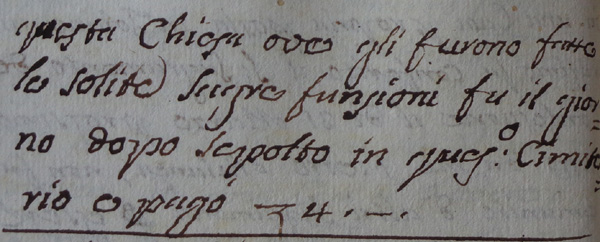 questa Chiesa ove gli furono fatte
le solite sagre funzioni fu il gior=
no dopo sepolto in ques:º Cimite=
rio e pagò 4.—.